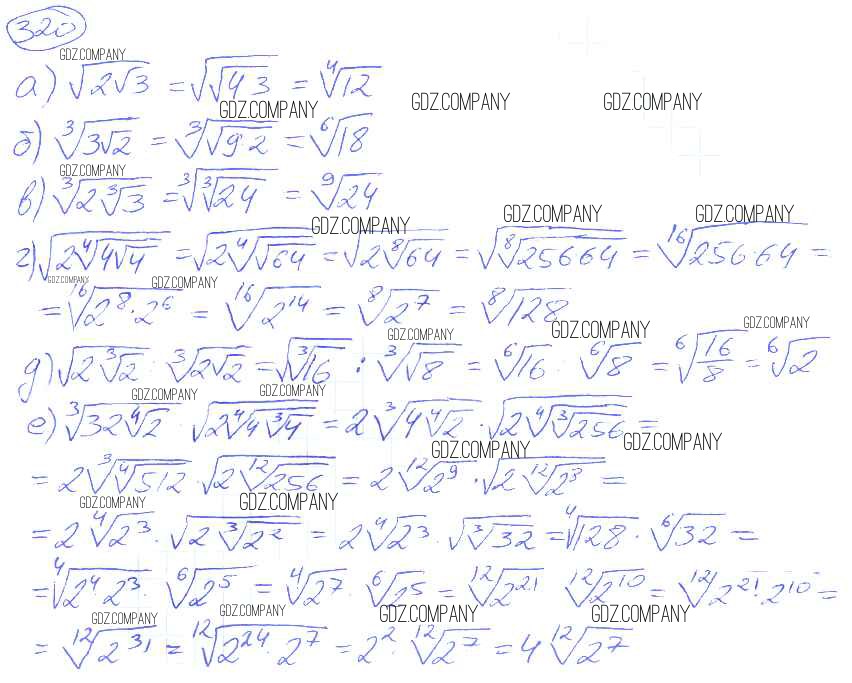 320
GDZ.COMPANY
а) √(2√3) = √(√(4·3)) = ⁴√12
GDZ.COMPANY GDZ.COMPANY GDZ.COMPANY
б) ³√(3√2) = ³√(√(9·2)) = ⁶√18
GDZ.COMPANY
в) ³√(2·³√3) = ³√(³√24) = ⁹√24
GDZ.COMPANY GDZ.COMPANY GDZ.COMPANY
г) √(2·⁴√(4√4)) = √(2·⁴√(√64)) = √(2·⁸√64) = √(⁸√(256·64)) = ¹⁶√(256·64) =
GDZ.COMPANY GDZ.COMPANY
= ¹⁶√(2⁸·2⁶) = ¹⁶√(2¹⁴) = ⁸√(2⁷) = ⁸√128
GDZ.COMPANY GDZ.COMPANY GDZ.COMPANY
д) √(2·³√2) : ³√(2√2) = √(³√16) : ³√(√8) = ⁶√16 : ⁶√8 = ⁶√(16/8) = ⁶√2
GDZ.COMPANY GDZ.COMPANY
е) ³√(32·⁴√2) · √(2·⁴√(4·³√4)) = 2·³√(4·⁴√2) · √(2·⁴√(³√256)) =
GDZ.COMPANY GDZ.COMPANY
= 2·³√(⁴√512) · √(2·¹²√256) = 2·¹²√(2⁹) · √(2·¹²√(2³)) =
GDZ.COMPANY GDZ.COMPANY
= 2·⁴√(2³) · √(2·³√(2²)) = 2·⁴√(2³) · √(³√32) = ⁴√128 · ⁶√32 =
= ⁴√(2⁴·2³) · ⁶√(2⁵) = ⁴√(2⁷) · ⁶√(2⁵) = ¹²√(2²¹) ¹²√(2¹⁰) = ¹²√(2²¹·2¹⁰) =
GDZ.COMPANY GDZ.COMPANY GDZ.COMPANY GDZ.COMPANY
= ¹²√(2³¹) = ¹²√(2²⁴·2⁷) = 2²·¹²√(2⁷) = 4·¹²√(2⁷)